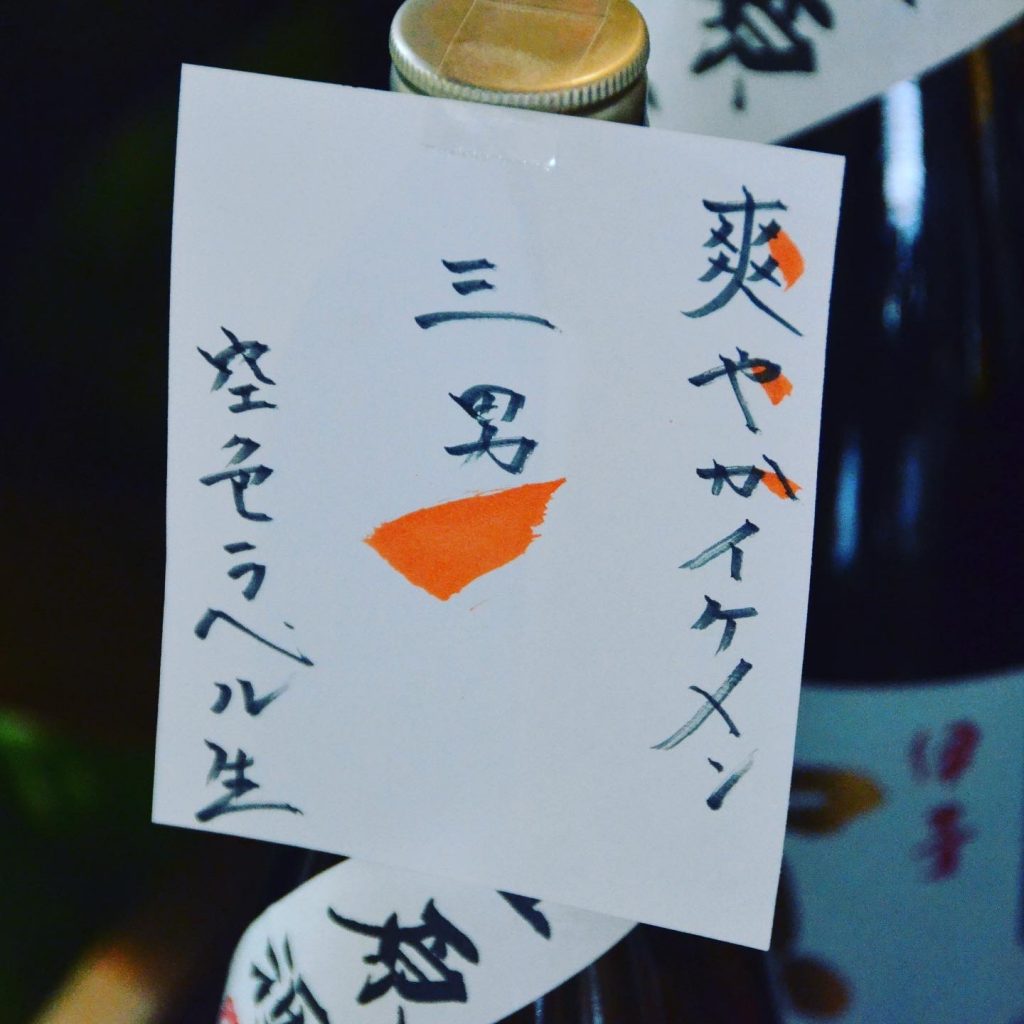 爽やかイケメン
三男
空色ラベル生